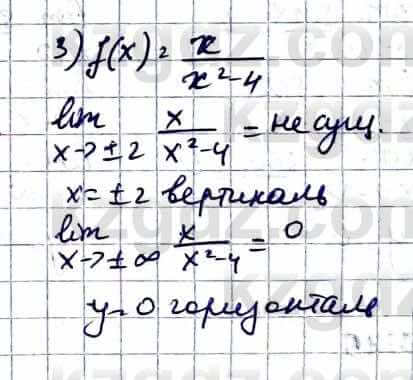 3) f(x) = x / (x² - 4)
lim x→±2 x / (x² - 4) = не сущ.
x = ±2 вертикаль
lim x→±∞ x / (x² - 4) = 0
y = 0 горизонталь